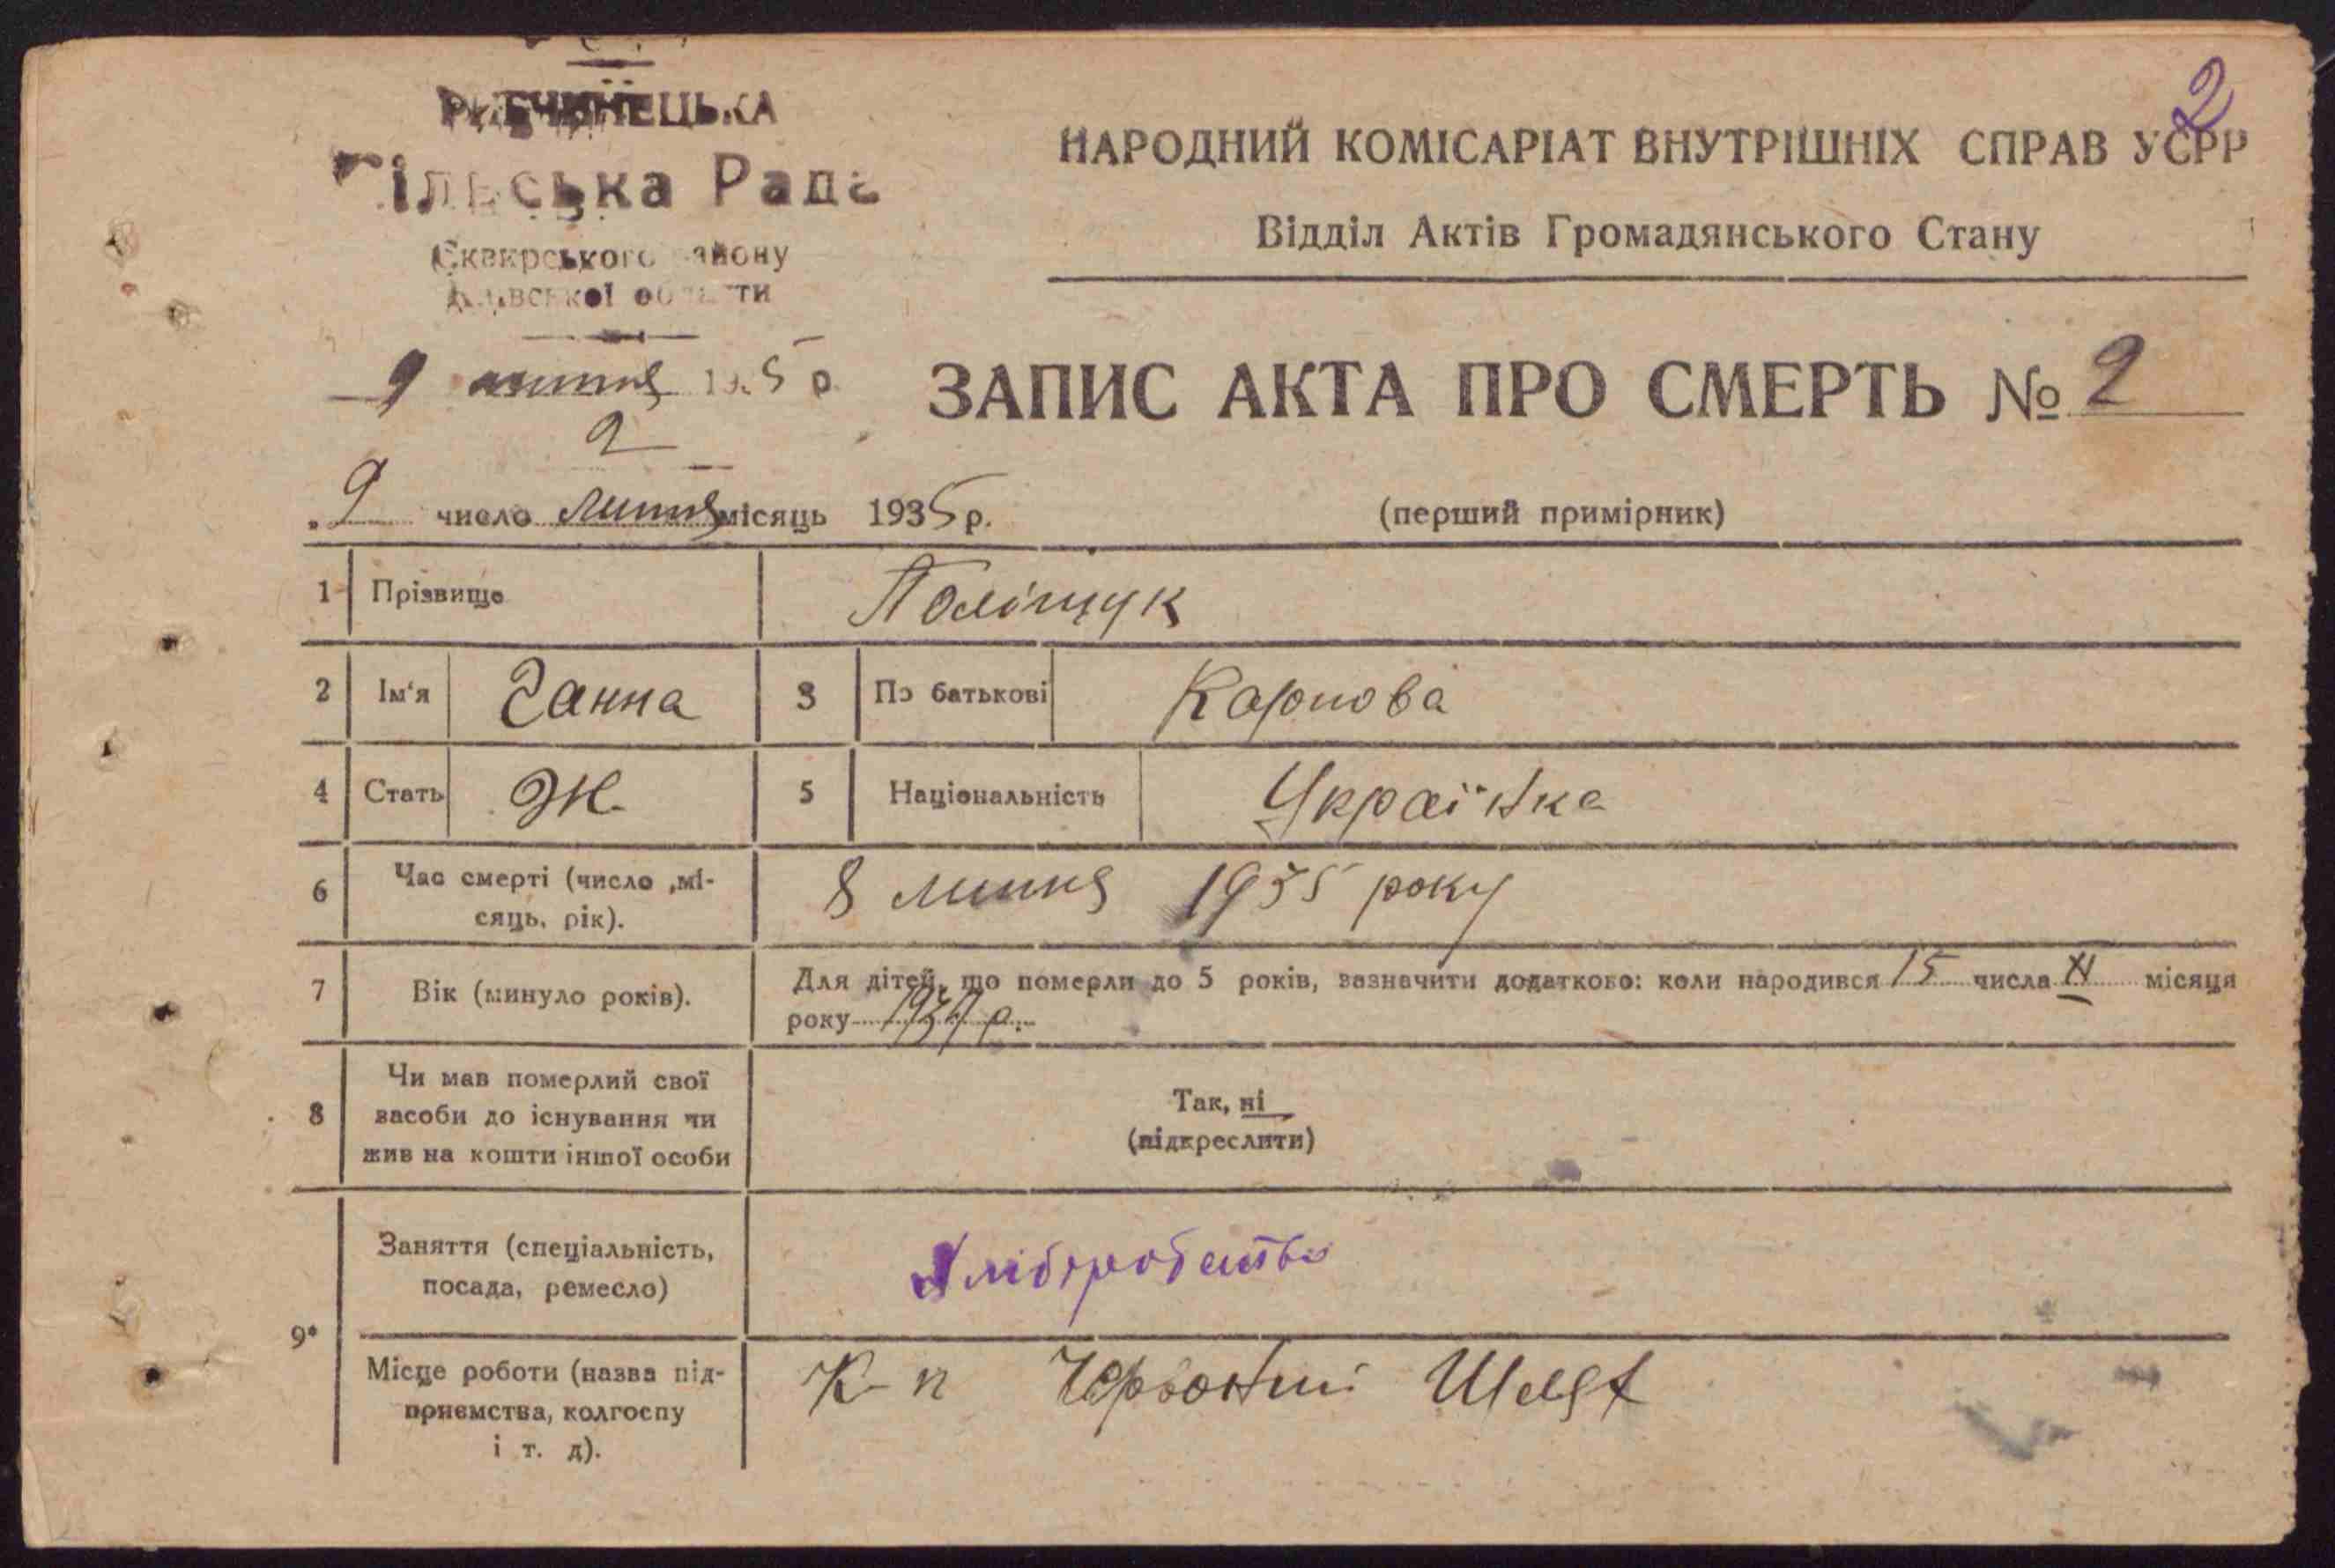 2
Сільська Рада
НАРОДНИЙ КОМІСАРІАТ ВНУТРІШНІХ СПРАВ УСРР
Сквирського району
Київської області
Відділ Актів Громадянського Стану
9 липня 1935 р.
2
ЗАПИС АКТА ПРО СМЕРТЬ № 2
„9 число липня місяць 1935 р.
(перший примірник)
1 Прізвище Поліщук
2 Ім'я Ганна 3 По батькові Карпова
4 Стать Ж. 5 Національність Українка
6 Час смерті (число ,мі-
сяць, рік). 8 липня 1935 року
7 Вік (минуло років). Для дітей, що померли до 5 років, зазначити додатково: коли народився 15 числа XI місяця
року 1934 р.
8 Чи мав померлий свої
засоби до існування чи
жив на кошти іншої особи
Так, ні
(підкреслити)
9*
Заняття (спеціальність,
посада, ремесло)
Хліборобство
Місце роботи (назва під-
приємства, колгоспу
і т. д).
К-п Червоний Шлях